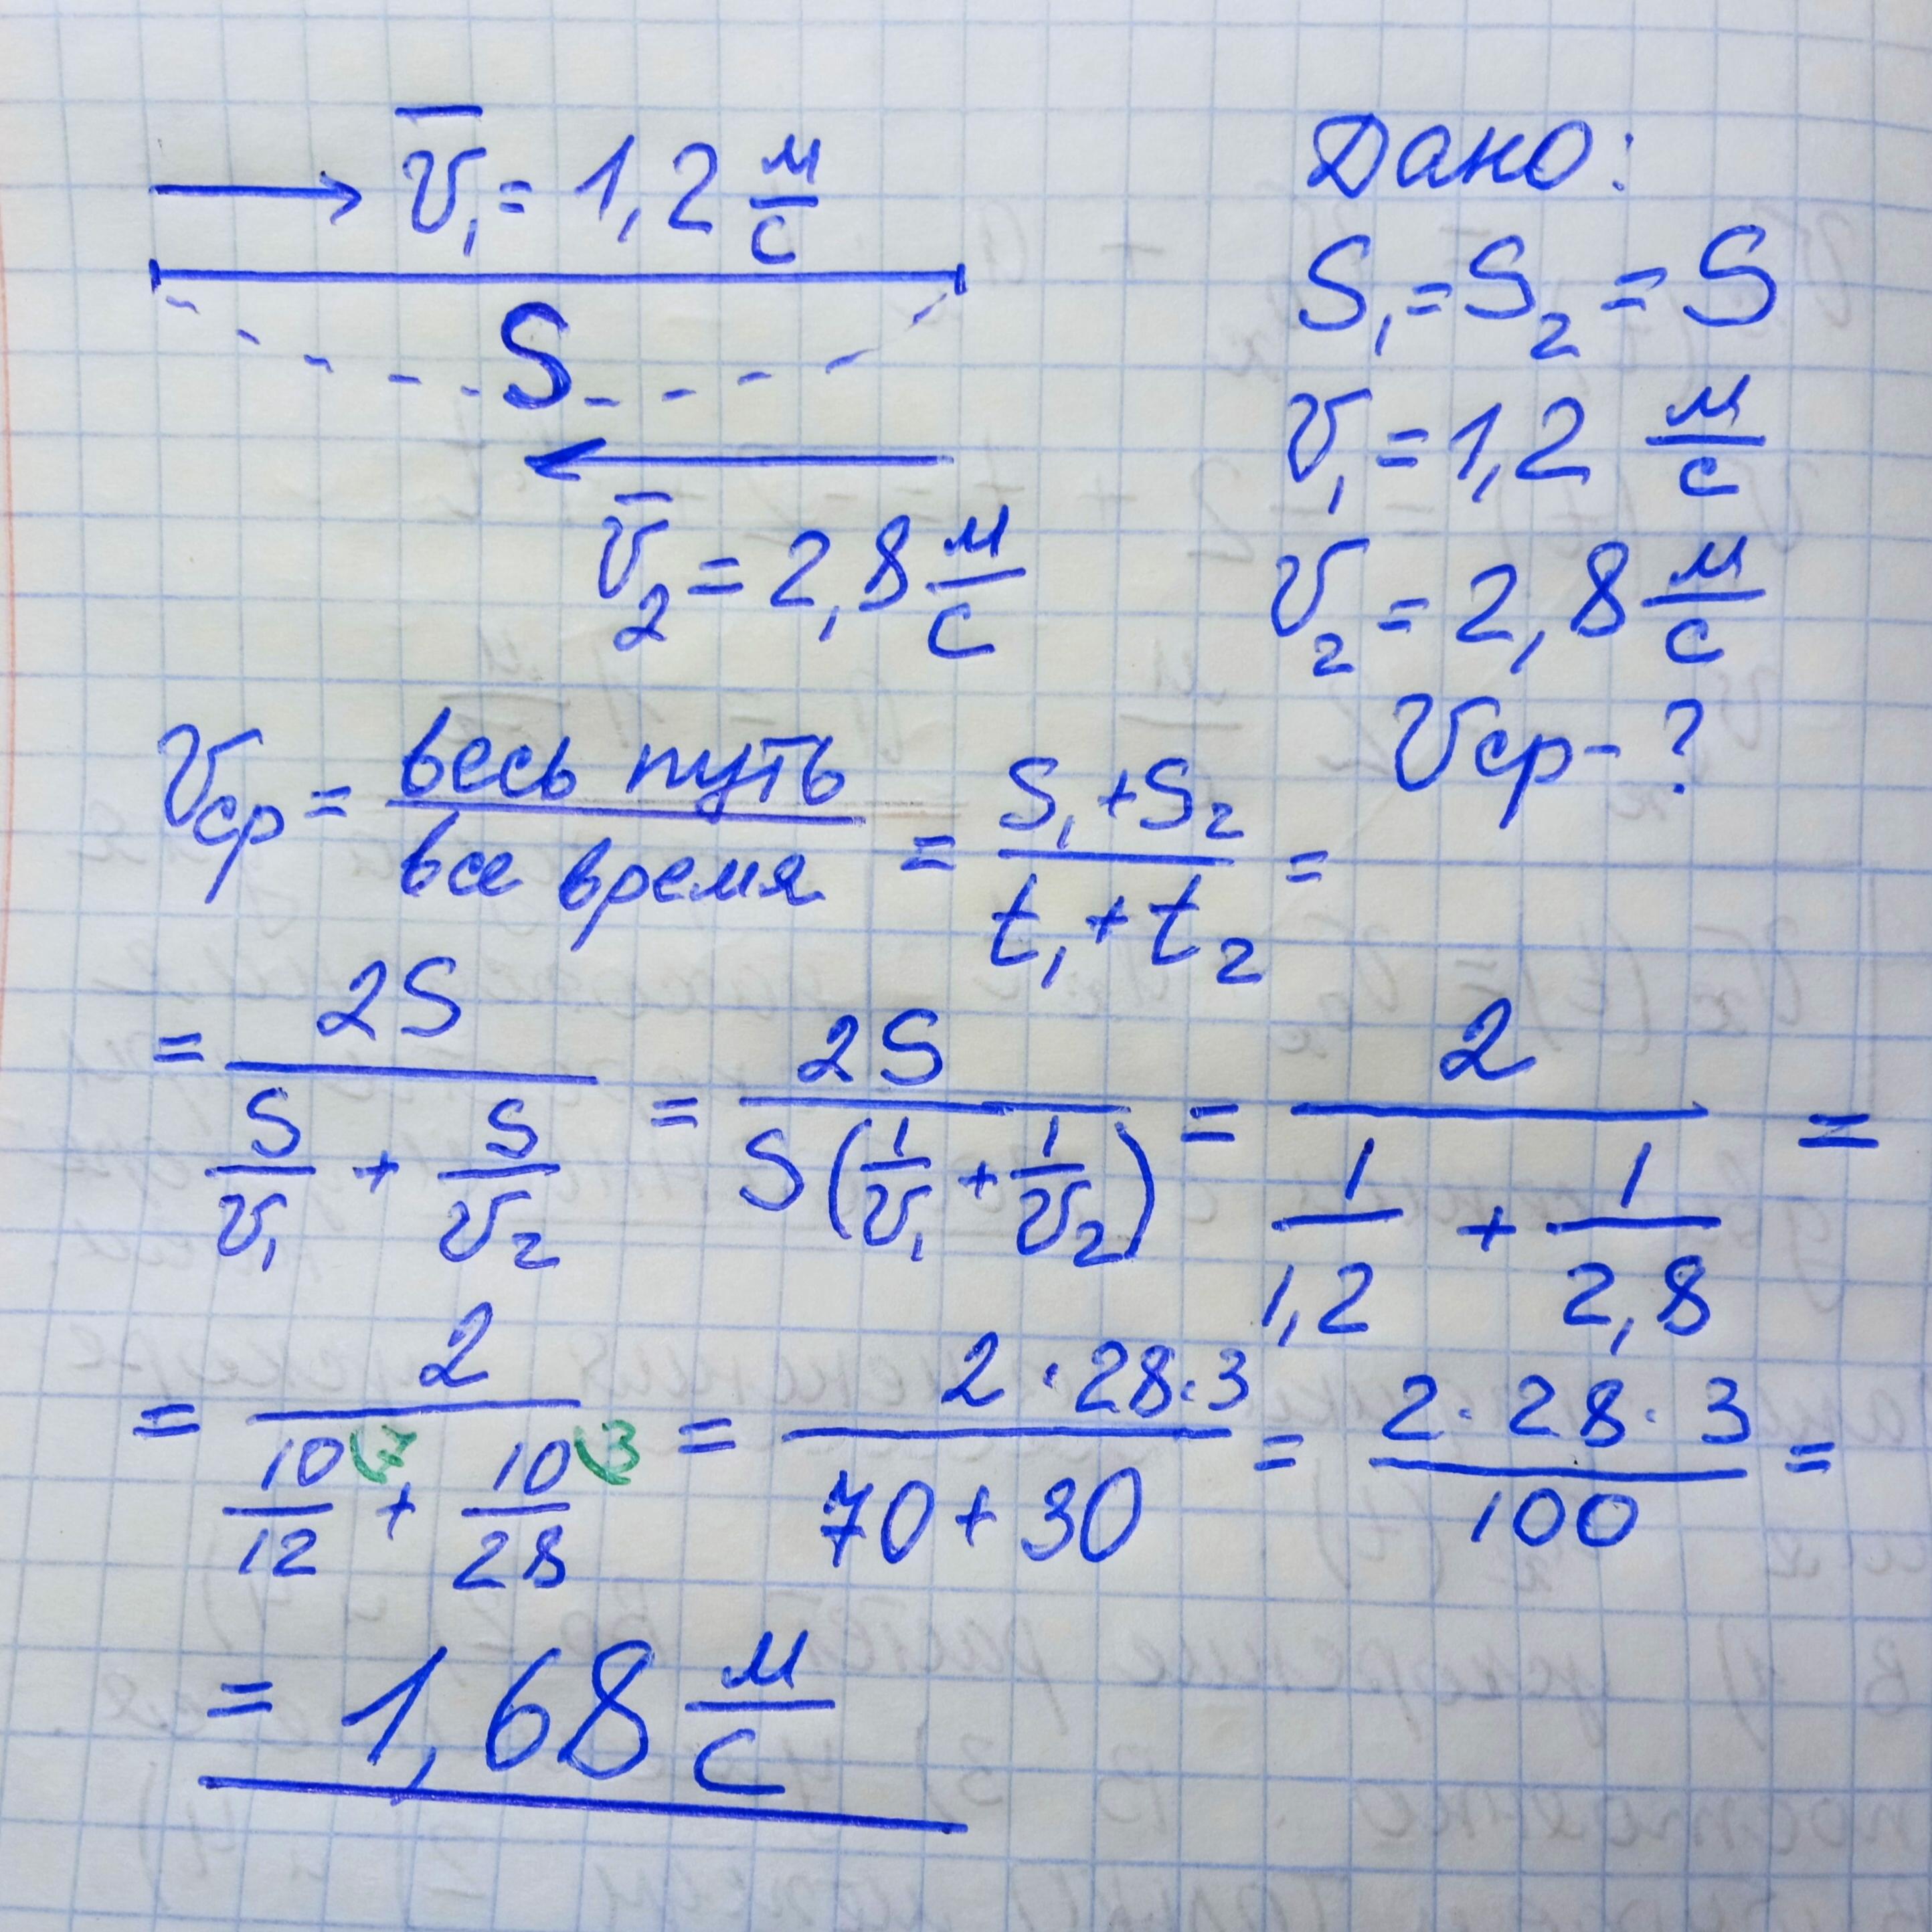 v̅₁ = 1,2 м/с
S
v̅₂ = 2,8 м/с
Дано:
S₁ = S₂ = S
v₁ = 1,2 м/с
v₂ = 2,8 м/с
vср - ?
vср = весь путь / все время = (S₁ + S₂) / (t₁ + t₂) =
= 2S / (S/v₁ + S/v₂) = 2S / (S(1/v₁ + 1/v₂)) = 2 / (1/1,2 + 1/2,8) =
= 2 / (10(7/12 + 10(3/28) = 2·28·3 / (70 + 30) = 2·28·3 / 100 =
= 1,68 м/с